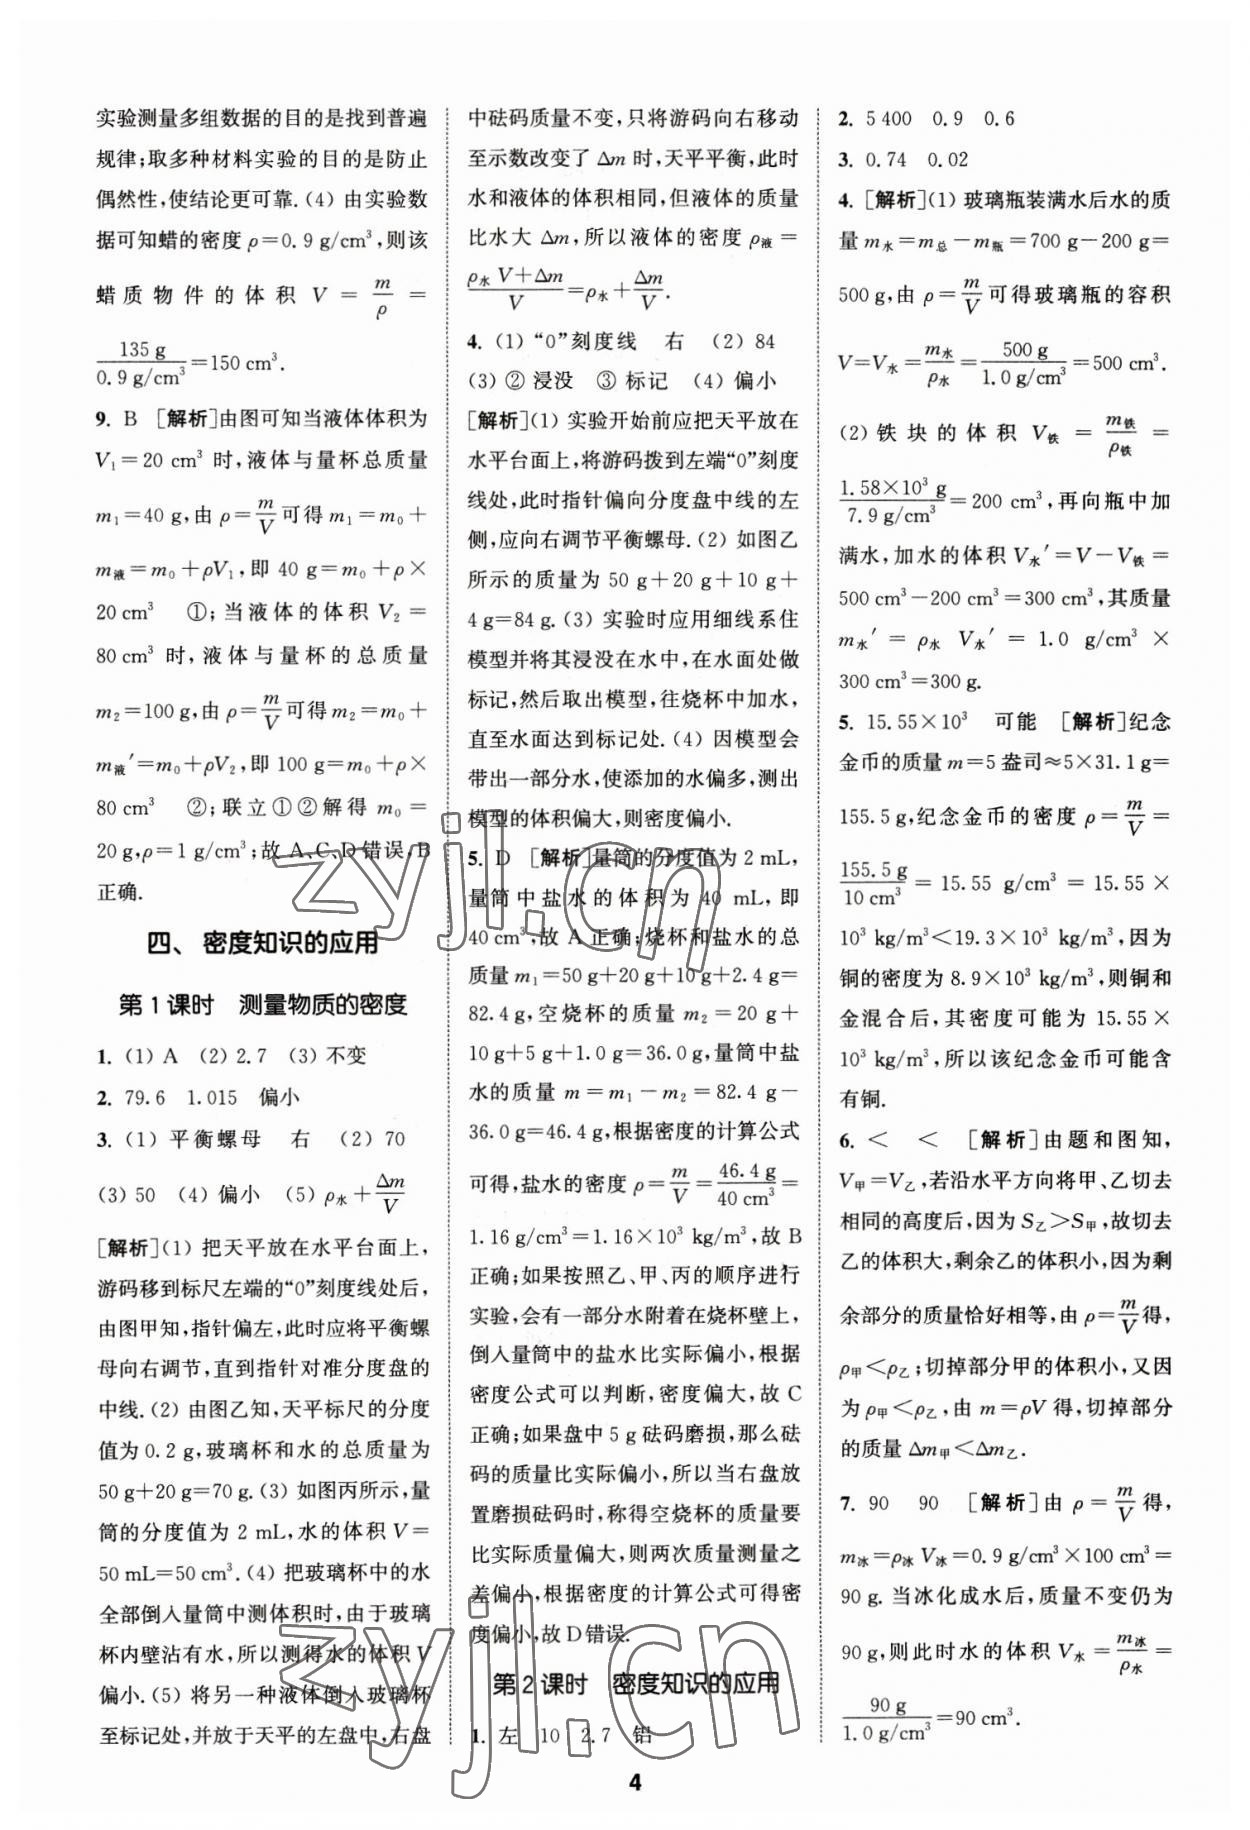 实验测量多组数据的目的是找到普遍
规律;取多种材料实验的目的是防止
偶然性,使结论更可靠.(4) 由实验数
据可知蜡的密度 ρ=0.9 g/cm³,则该
蜡质物件的体积 V = m/ρ =
135 g/0.9 g/cm³=150 cm³.
9. B [解析]由图可知当液体体积为
V₁=20 cm³ 时,液体与量杯总质量
m₁=40 g,由 ρ=m/V可得 m₁=m₀+
m液=m₀+ρV₁,即 40 g=m₀+ρ×
20 cm³ ①;当液体的体积 V₂=
80 cm³ 时,液体与量杯的总质量
m₂=100 g,由 ρ=m/V可得 m₂=m₀+
m液′=m₀+ρV₂,即 100 g=m₀+ρ×
80 cm³ ②;联立①②解得 m₀=
20 g,ρ=1 g/cm³;故 A、C、D 错误,B
正确.
四、密度知识的应用
第 1 课时 测量物质的密度
1. (1) A (2) 2.7 (3) 不变
2. 79.6 1.015 偏小
3. (1) 平衡螺母 右 (2) 70
(3) 50 (4) 偏小 (5) ρ水+Δm/V
[解析](1) 把天平放在水平台面上,
游码移到标尺左端的“0”刻度线处后,
由图甲知,指针偏左,此时应将平衡螺
母向右调节,直到指针对准分度盘的
中线.(2) 由图乙知,天平标尺的分度
值为 0.2 g,玻璃杯和水的总质量为
50 g+20 g=70 g.(3) 如图丙所示,量
筒的分度值为 2 mL,水的体积 V=
50 mL=50 cm³.(4) 把玻璃杯中的水
全部倒入量筒中测体积时,由于玻璃
杯内壁沾有水,所以测得水的体积 V
偏小.(5) 将另一种液体倒入玻璃杯
至标记处,并放于天平的左盘中,右盘
中砝码质量不变,只将游码向右移动
至示数改变了 Δm 时,天平平衡,此时
水和液体的体积相同,但液体的质量
比水大 Δm,所以液体的密度 ρ液=
ρ水 V+Δm/V=ρ水+Δm/V.
4. (1) “0”刻度线 右 (2) 84
(3) ② 浸没 ③ 标记 (4) 偏小
[解析](1) 实验开始前应把天平放在
水平台面上,将游码拨到左端“0”刻度
线处,此时指针偏向分度盘中线的左
侧,应向右调节平衡螺母.(2) 如图乙
所示的质量为 50 g+20 g+10 g+
4 g=84 g.(3) 实验时应用细线系住
模型并将其浸没在水中,在水面处做
标记,然后取出模型,往烧杯中加水,
直至水面达到标记处.(4) 因模型会
带出一部分水,使添加的水偏多,测出
模型的体积偏大,则密度偏小.
5. D [解析]量筒的分度值为 2 mL,
量筒中盐水的体积为 40 mL,即
40 cm³,故 A 正确;烧杯和盐水的总
质量 m₁=50 g+20 g+10 g+2.4 g=
82.4 g,空烧杯的质量 m₂=20 g+
10 g+5 g+1.0 g=36.0 g,量筒中盐
水的质量 m=m₁-m₂=82.4 g-
36.0 g=46.4 g,根据密度的计算公式
可得,盐水的密度 ρ=m/V=46.4 g/40 cm³=
1.16 g/cm³=1.16×10³ kg/m³,故 B
正确;如果按照乙、甲、丙的顺序进行
实验,会有一部分水附着在烧杯壁上,
倒入量筒中的盐水比实际偏小,根据
密度公式可以判断,密度偏大,故 C
正确;如果盘中 5 g 砝码磨损,那么砝
码的质量比实际偏小,所以当右盘放
置磨损砝码时,称得空烧杯的质量要
比实际质量偏大,则两次质量测量之
差偏小,根据密度的计算公式可得密
度偏小,故 D 错误.
第 2 课时 密度知识的应用
1. 左 10 2.7 铝
2. 5 400 0.9 0.6
3. 0.74 0.02
4. [解析](1) 玻璃瓶装满水后水的质
量 m水=m总-m瓶=700 g-200 g=
500 g,由 ρ=m/V可得玻璃瓶的容积
V=V水=m水/ρ水=500 g/1.0 g/cm³=500 cm³.
(2) 铁块的体积 V铁 = m铁/ρ铁 =
1.58×10³ g/7.9 g/cm³=200 cm³,再向瓶中加
满水,加水的体积 V水′=V-V铁=
500 cm³-200 cm³=300 cm³,其质量
m水′ = ρ水 V水′ = 1.0 g/cm³ ×
300 cm³=300 g.
5. 15.55×10³ 可能 [解析]纪念
金币的质量 m=5 盎司≈5×31.1 g=
155.5 g,纪念金币的密度 ρ=m/V=
155.5 g/10 cm³ = 15.55 g/cm³ = 15.55 ×
10³ kg/m³<19.3×10³ kg/m³,因为
铜的密度为 8.9×10³ kg/m³,则铜和
金混合后,其密度可能为 15.55×
10³ kg/m³,所以该纪念金币可能含
有铜.
6. < < [解析]由题和图知,
V甲=V乙,若沿水平方向将甲、乙切去
相同的高度后,因为 S乙>S甲,故切去
乙的体积大,剩余乙的体积小,因为剩
余部分的质量恰好相等,由 ρ=m/V得,
ρ甲<ρ乙;切掉部分甲的体积小,又因
为 ρ甲<ρ乙,由 m=ρV 得,切掉部分
的质量 Δm甲<Δm乙.
7. 90 90 [解析]由 ρ=m/V得,
m冰=ρ冰 V冰=0.9 g/cm³×100 cm³=
90 g. 当冰化成水后,质量不变仍为
90 g,则此时水的体积 V水=m冰/ρ水=
90 g/1.0 g/cm³=90 cm³.
4
zyjl.cn
zyjl.cn